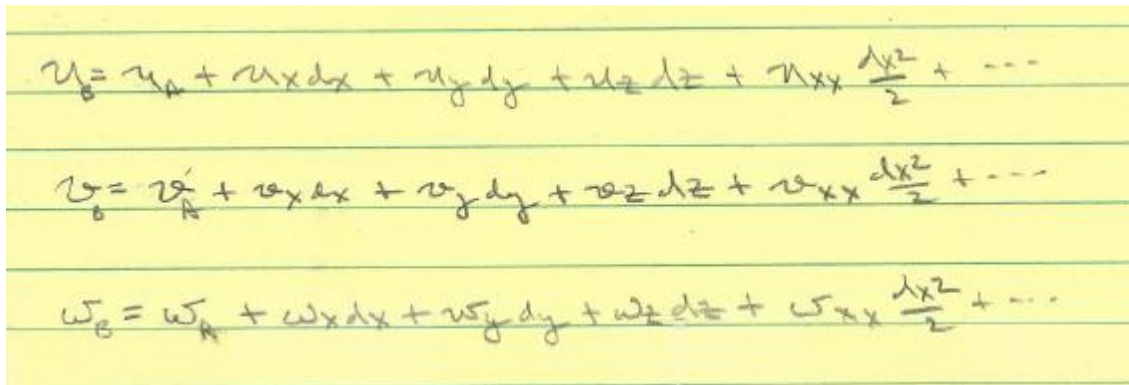 u_B = u_A + u_x dx + u_y dy + u_z dz + u_xx dx²/2 + ---
v_B = v_A + v_x dx + v_y dy + v_z dz + v_xx dx²/2 + ---
w_B = w_A + w_x dx + w_y dy + w_z dz + w_xx dx²/2 + ---